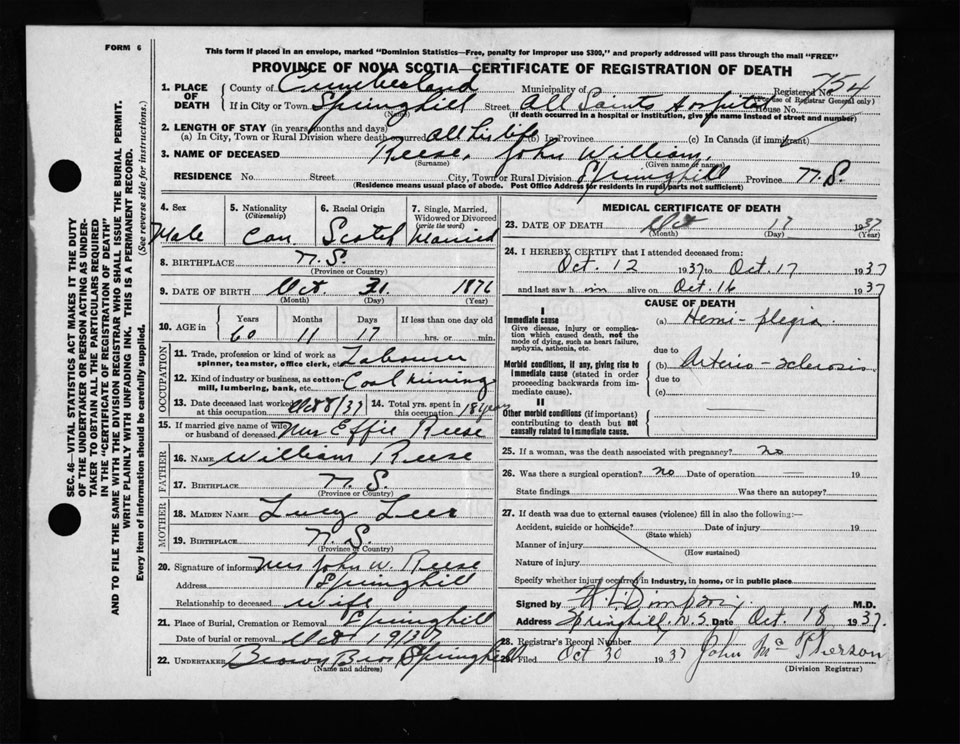 FORM 6
This form if placed in an envelope, marked "Dominion Statistics—Free, penalty for improper use $300," and properly addressed will pass through the mail "FREE"
PROVINCE OF NOVA SCOTIA—CERTIFICATE OF REGISTRATION OF DEATH
1. PLACE OF DEATH County of Cumberland Municipality of Registered No. 754
(For use of Registrar General only)
If in City or Town Springhill Street All Saints Hospital House No.
(Name) (If death occurred in a hospital or institution, give the name instead of street and number)
2. LENGTH OF STAY (in years, months and days)
(a) In City, Town or Rural Division where death occurred All his life (b) In Province (c) In Canada (if immigrant)
3. NAME OF DECEASED Reese, John William,
(Surname) (Given name or names)
RESIDENCE No. Street City, Town or Rural Division Springhill Province N.S.
(Residence means usual place of abode. Post Office Address for residents in rural parts not sufficient)
4. Sex Male
5. Nationality (Citizenship) Can.
6. Racial Origin Scotch
7. Single, Married, Widowed or Divorced (write the word) Married
8. BIRTHPLACE N.S.
(Province or Country)
9. DATE OF BIRTH Oct. 31. 1876
(Month) (Day) (Year)
10. AGE in Years Months Days If less than one day old
60 11 17 hrs. or min.
OCCUPATION
11. Trade, profession or kind of work as spinner, teamster, office clerk, etc. Labourer
12. Kind of industry or business, as cotton-mill, lumbering, bank, etc. Coal mining
13. Date deceased last worked at this occupation Oct 8/37
14. Total yrs. spent in this occupation 18 years
15. If married give name of wife or husband of deceased Mrs Effie Reese
FATHER
16. NAME William Reese
17. BIRTHPLACE N.S.
(Province or Country)
MOTHER
18. MAIDEN NAME Lucy
19. BIRTHPLACE N.S.
(Province or Country)
20. Signature of informant Mrs John W. Reese
Address Springhill
Relationship to deceased Wife
21. Place of Burial, Cremation or Removal Springhill
Date of burial or removal Oct 19/37
22. UNDERTAKER Brown Bros Springhill
(Name and address)
MEDICAL CERTIFICATE OF DEATH
23. DATE OF DEATH Oct 17 1937
(Month) (Day) (Year)
24. I HEREBY CERTIFY that I attended deceased from:
Oct. 12 1937 to Oct. 17 1937
and last saw him alive on Oct. 16 1937
CAUSE OF DEATH
I
Immediate cause (a) Hemi-plegia
Give disease, injury or complication which caused death, not the mode of dying, such as heart failure, asphyxia, asthenia, etc.
due to
Morbid conditions, if any, giving rise to immediate cause (stated in order proceeding backwards from immediate cause). (b) Arterio-sclerosis
due to
(c)
II
Other morbid conditions (if important) contributing to death but not causally related to immediate cause.
25. If a woman, was the death associated with pregnancy? no
26. Was there a surgical operation? no Date of operation 19
State findings Was there an autopsy?
27. If death was due to external causes (violence) fill in also the following:—
Accident, suicide or homicide? Date of injury 19
(State which)
Manner of injury
(How sustained)
Nature of injury
Specify whether injury occurred in industry, in home, or in public place
Signed by Simpson M.D.
Address Springhill, N.S. Date Oct. 18 1937.
28. Registrar's Record Number 7
29. Filed Oct 30 1937 John McPherson
(Division Registrar)
SEC. 46—VITAL STATISTICS ACT MAKES IT THE DUTY
OF THE UNDERTAKER OR PERSON ACTING AS UNDER-
TAKER TO OBTAIN ALL THE PARTICULARS REQUIRED
IN THE "CERTIFICATE OF REGISTRATION OF DEATH"
AND TO FILE THE SAME WITH THE DIVISION REGISTRAR WHO SHALL ISSUE THE BURIAL PERMIT.
WRITE PLAINLY WITH UNFADING INK. THIS IS A PERMANENT RECORD.
Every item of information should be carefully supplied. (See reverse side for instructions.)